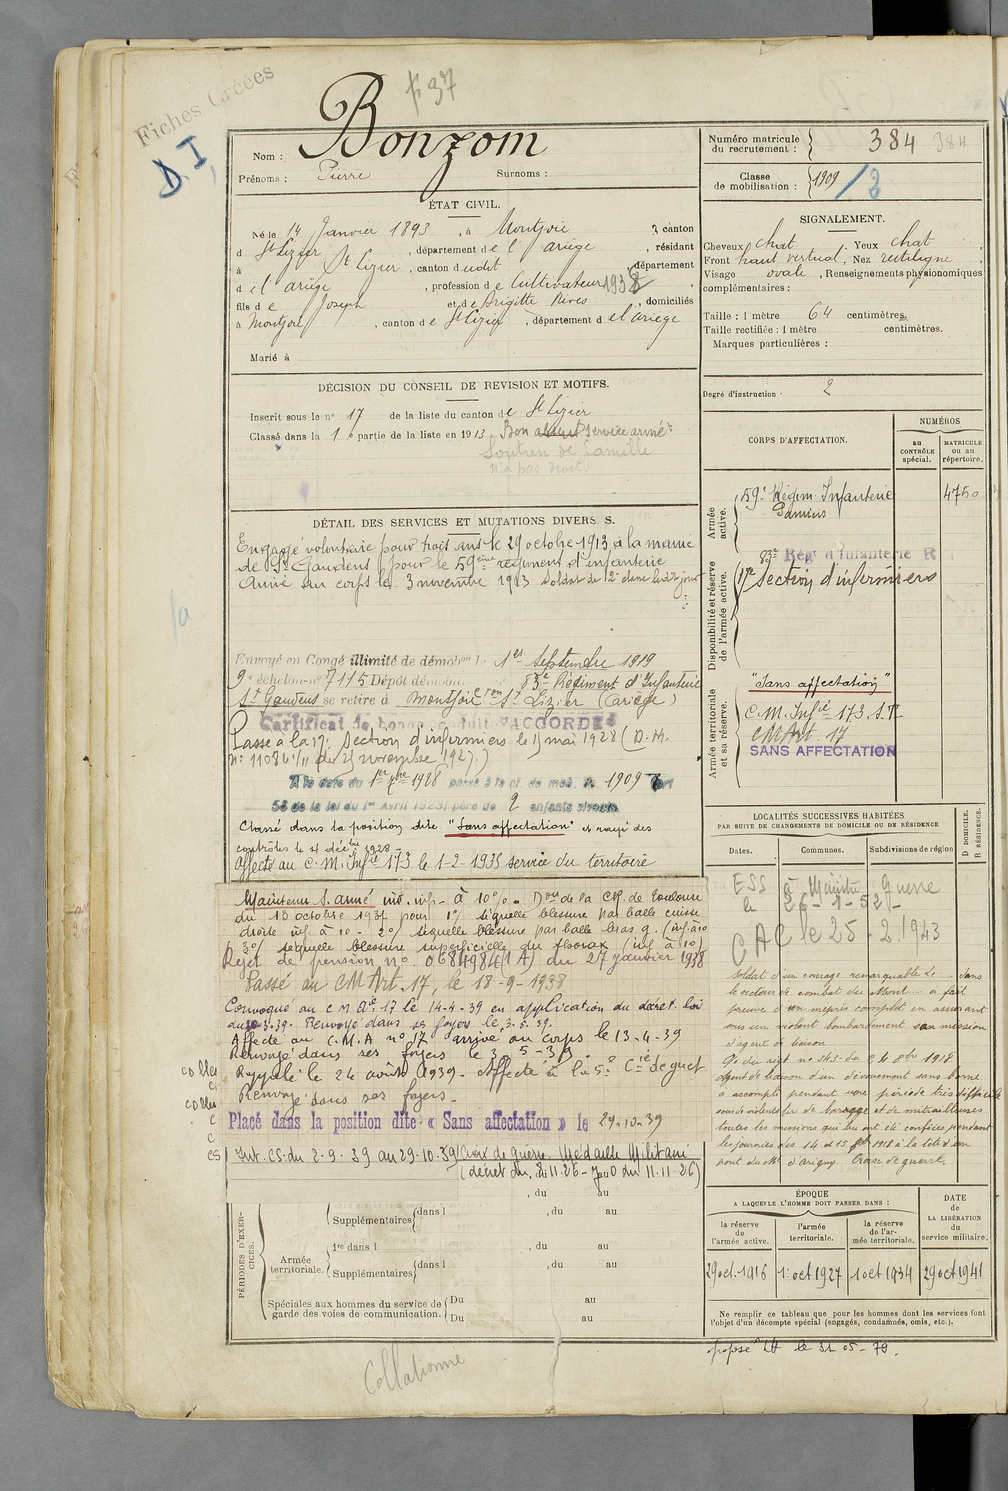 Fiches Créées
D.I,
Bonzom
Nom :
Prénoms : Pierre Surnoms :
ÉTAT CIVIL.
Né le 14 Janvier 1893, à Montjoie canton
d St Lizier, département de l'ariège, résidant
à St Lizier, canton dudit, département
d el ariège, profession de Cultivateur 1938
fils de Joseph et de Brigitte Rives, domiciliés
à Montjoie, canton de St Lizier, département d el ariège
Marié à
DÉCISION DU CONSEIL DE REVISION ET MOTIFS.
Inscrit sous le n° 17 de la liste du canton de St Lizier
Classé dans la 1e partie de la liste en 1913 Bon service armé
Soutien de famille
n'a pas droit
DÉTAIL DES SERVICES ET MUTATIONS DIVERSES.
Engagé volontaire pour trois ans le 29 octobre 1913, à la mairie
de St Gaudens pour le 59ème régiment d'infanterie
Arrivé au corps le 3 novembre 1913 soldat de 2e classe ledit jour
Envoyé en Congé illimité de démobon le 1er Septembre 1919
9e échelon n° 7115 Dépôt démob. 83e Régiment d'Infanterie
St Gaudens se retire à Montjoie con St Lizier (Ariège)
Certificat de bonne conduite "ACCORDÉ"
Passé à la 17e Section d'infirmiers le 1) mai 1928 (D.M.
novembre 1927.)
A la date du 1er 1928 passé à la cl. de mob. de 1909 art
58 de la loi du 1er Avril 1923) père de 2 enfants vivants
Classé dans la position dite "Sans affectation" et rayé des
contrôles le 4 décbre 1928 -
affecté au C.M. Infie 173 le 1-2-1935 service du territoire
Maintenu S. armé inv. inf. à 10% - Don de la CR. de Toulouse
du 13 octobre 1937 pour 1°/ séquelle blessure par balle cuisse
droite inf. à 10 - 2°/ séquelle blessure par balle bras g. (inf. à 10
3°/ séquelle blessure superficielle du thorax (inf. à 10)
Rejet de pension n° 0684984 (1A) du 27 janvier 1938
Passé au CM Art. 17, le 18-9-1938
Convoqué au C M Aie 17 le 14-4-39 en application du décret loi
du 20-3-39. Renvoyé dans ses foyers le 3.5.39.
Affecté au C.M.A n° 17 arrivé au corps le 13-4-39
Renvoyé dans ses foyers le 3-5-39.
Rappelé le 24 août 1939. Affecté à la 5e Cie de guet
Renvoyé dans ses foyers -
Placé dans la position dite « Sans affectation » le 29-10-39
Int. CS. du 2-9-39 au 29-10-39 Croix de guerre. Médaille Militaire
(décret du 8.11.26 - J.O du 11.11.26)
, du au
PÉRIODES D'EXERCICES.
Supplémentaires dans l , du au
Armée territoriale.
1re dans l , du au
Supplémentaires dans l , du au
Spéciales aux hommes du service de garde des voies de communication.
Du au
Du au
Collationné
Numéro matricule du recrutement : 384 384
Classe de mobilisation : 1909 /2
SIGNALEMENT.
Cheveux chat. Yeux chat,
Front haut vertical, Nez rectiligne,
Visage ovale, Renseignements physionomiques
complémentaires :
Taille : 1 mètre 64 centimètres.
Taille rectifiée : 1 mètre centimètres.
Marques particulières :
Degré d'instruction . 2
CORPS D'AFFECTATION.
NUMÉROS
au CONTRÔLE spécial.
MATRICULE ou au répertoire.
Armée active.
59e Régim. Infanterie 4750
Pamiers
Disponibilité et réserve de l'armée active.
83e Rég. d'Infanterie R
17e Section d'infirmiers
Armée territoriale et sa réserve.
"Sans affectation"
C.M. Infie 173 S.T.
CM Art. 17
SANS AFFECTATION
LOCALITÉS SUCCESSIVES HABITÉES
PAR SUITE DE CHANGEMENTS DE DOMICILE OU DE RÉSIDENCE
D DOMICILE. R RÉSIDENCE.
Dates. Communes. Subdivisions de région
ESS à Ministre Guerre
le 26-1-52-
CAC le 25-2-1943
Soldat d'un courage remarquable le .. dans
le secteur de combat du Mont... a fait
preuve d'un mépris complet en assurant
sous un violent bombardement sa mission
d'agent de liaison
Agent de liaison d'un dévouement sans borne
a accompli pendant une période très difficile
sous de violents tirs de barrage et de mitrailleuses
toutes les missions qui lui ont été confiées pendant
les journées des 14 et 15 1918 à la tête d'un
pont du Mt d'origny. Croix de guerre.
ÉPOQUE
A LAQUELLE L'HOMME DOIT PASSER DANS :
la réserve de l'armée active.
l'armée territoriale.
la réserve de l'armée territoriale.
DATE de LA LIBÉRATION du service militaire.
29 oct. 1916 1 oct 1927 1 oct 1934 29 oct 1941
Ne remplir ce tableau que pour les hommes dont les services font
l'objet d'un décompte spécial (engagés, condamnés, omis, etc.).
proposé LH le 31-05-70.